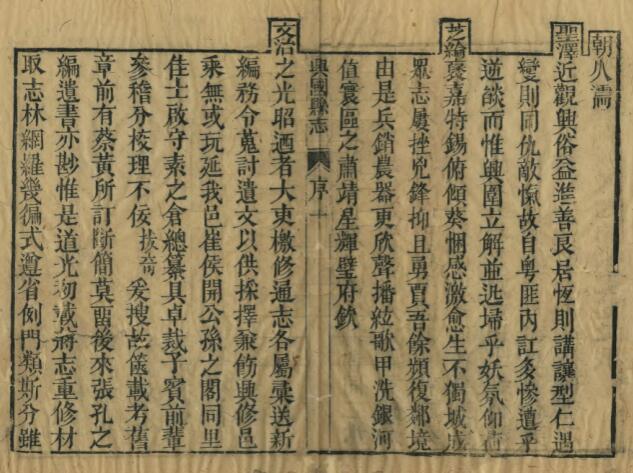 朝久濡
聖澤近觀興俗益進善良居恆則講讓型仁遇
變則同仇敵愾故自粵匪內訌多慘遭乎
逆燄而惟興圍立解並迅埽乎妖氛仰荷
芝綸褒嘉特錫俯傾葵悃感激愈生不獨城成
眾志屢挫兇鋒抑且勇賈吾餘頻復鄰境
由是兵銷農器更欣聲播絃歌甲洗銀河
值寰區之肅靖星輝璧府欽
興國縣志 序 十
文治之光昭迺者大吏檄修通志各屬彙送新
編務令蒐討遺文以供採擇兼飭興修邑
乘無或玩延我邑崔侯開公孫之閣同里
佳士啟守素之倉總纂具卓裁子賓前輩
參稽分校理不佞拔崙爰搜故篋載考舊
章前有蔡黃所訂斷簡莫畱後來張孔之
編遺書亦尠惟是道光初載蔣志重修材
取志林網羅幾徧式遵省例門類斯分雖